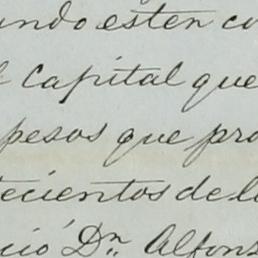 undo esten co
l Capital que
pesos que pro
tecientos de lo
ció Dn. Alfons